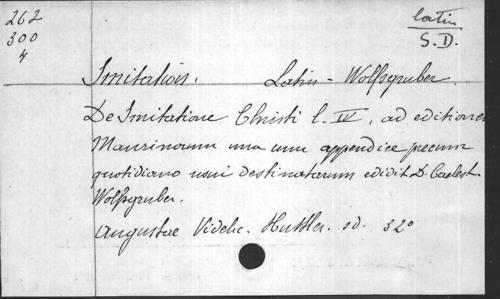 262
300
4
latin
S.D.
Imitation. Latin - Wolfsgruber.
De Imitatione Christi l. IV, ad editionem
Maurinorum una cum appendice precum
quotidiano usui destinatarum edidit D. Caelest.
Wolfsgruber.
Augustae Videlic. Huttler. sd. 32°